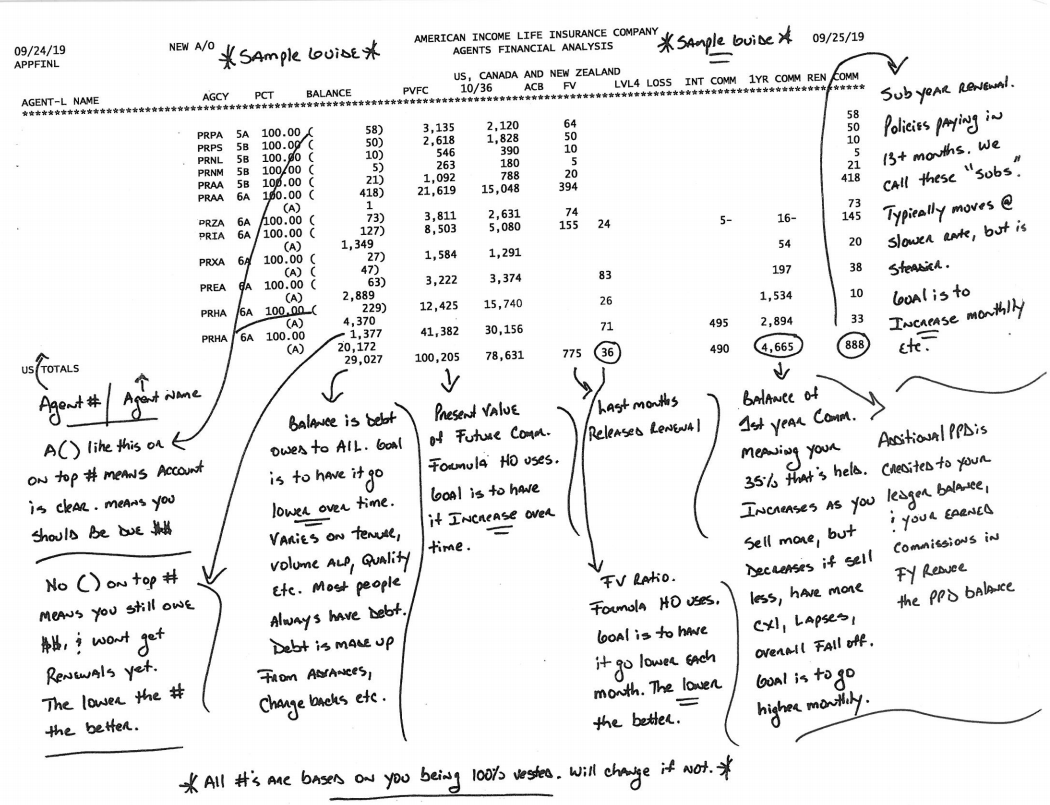 09/24/19 NEW A/O * SAmple GUIDE * AMERICAN INCOME LIFE INSURANCE COMPANY * SAmple Guide * 09/25/19
APPFINL AGENTS FINANCIAL ANALYSIS
US, CANADA AND NEW ZEALAND
AGENT-L NAME AGCY PCT BALANCE PVFC 10/36 ACB FV LVL4 LOSS INT COMM 1YR COMM REN COMM
PRPA 5A 100.00 ( 58) 3,135 2,120 64 58
PRPS 5B 100.00 ( 50) 2,618 1,828 50 50
PRNL 5B 100.00 ( 10) 546 390 10 10
PRNM 5B 100.00 ( 5) 263 180 5 5
PRAA 5B 100.00 ( 21) 1,092 788 20 21
PRAA 6A 100.00 ( 418) 21,619 15,048 394 418
(A) 1
PRZA 6A 100.00 ( 73) 3,811 2,631 74 73
PRIA 6A 100.00 ( 127) 8,503 5,080 155 24 5- 16- 145
(A) 1,349
PRXA 6A 100.00 ( 27) 1,584 1,291 54 20
(A) ( 47)
PREA 6A 100.00 ( 63) 3,222 3,374 83 197 38
(A) 2,889
PRHA 6A 100.00 ( 229) 12,425 15,740 26 1,534 10
(A) 4,370
PRHA 6A 100.00 1,377 41,382 30,156 71 495 2,894 33
(A) 20,172
US TOTALS 29,027 100,205 78,631 775 36 490 4,665 888
Sub year Renewal.
Policies paying in
13+ months. We
call these "Subs".
Typically moves @
slower rate, but is
steadier.
Goal is to
Increase monthly
etc.
Agent # | Agent Name
A () like this on
on top # means Account
is clear. means you
should be due $$
No () on top #
means you still owe
$$, & wont get
Renewals yet.
The lower the #
the better.
Balance is debt
owed to AIL. Goal
is to have it go
lower over time.
Varies on tenure,
volume ALP, Quality
etc. Most people
Always have Debt.
Debt is made up
From Advances,
Charge backs etc.
Present Value
of Future Comm.
Formula HO uses.
Goal is to have
it Increase over
time.
Last months
Released Renewal
FV Ratio.
Formula HO uses.
Goal is to have
it go lower each
month. The lower
the better.
Balance of
1st year Comm.
meaning your
35% that's held.
Increases as you
sell more, but
Decreases if sell
less, have more
cxl, Lapses,
overall Fall off.
Goal is to go
higher monthly.
Additional PPD is
credited to your
ledger balance,
& your earned
commissions in
FY Reduce
the PPD balance
* All #'s are based on you being 100% vested. Will change if not. *